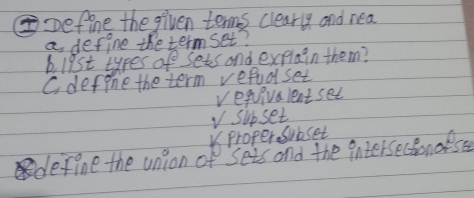 I Define the given terms clearly and nea
a, define the term set?
b. list types of sets and explain them?
C, define the term √ equal set
√ equivalent set
√ subset
√ proper subset
define the union of sets and the intersection of se